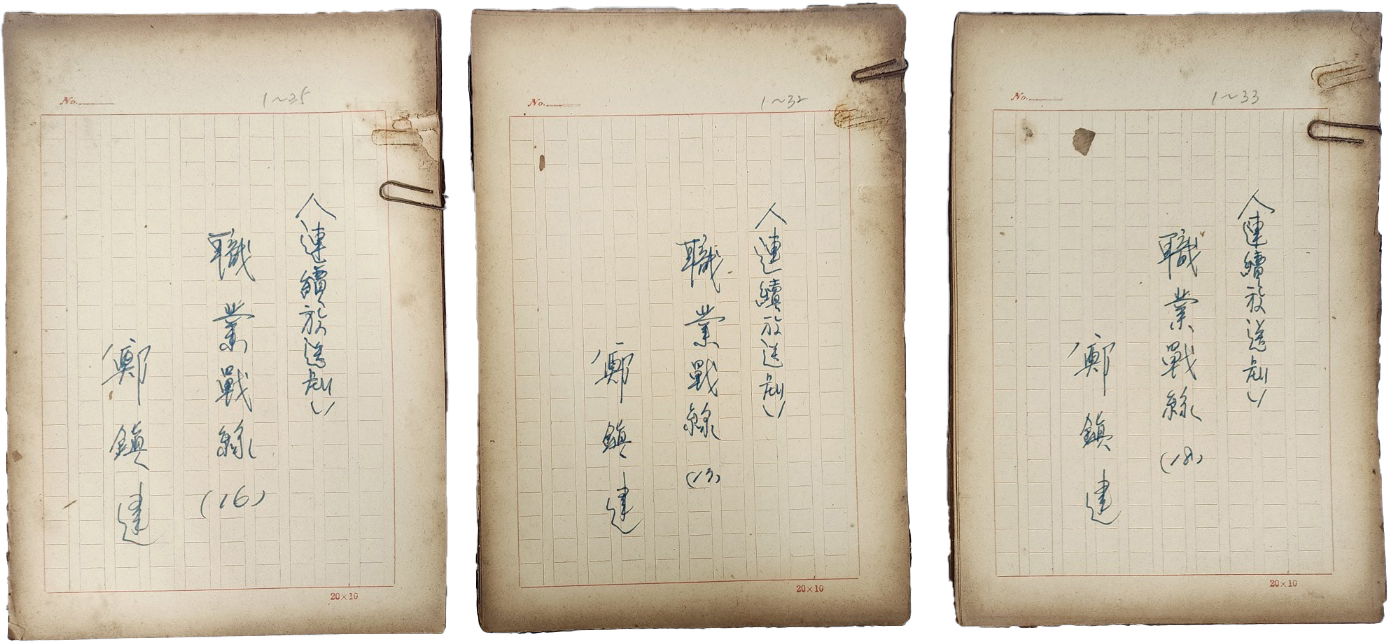 No.
1~25
〈連續放送劇〉
職業戰線
(16)
鄭鎮建
20×10
No.
1~32
〈連續放送劇〉
職業戰線
(17)
鄭鎮建
20×10
No.
1~33
〈連續放送劇〉
職業戰線
(18)
鄭鎮建
20×10